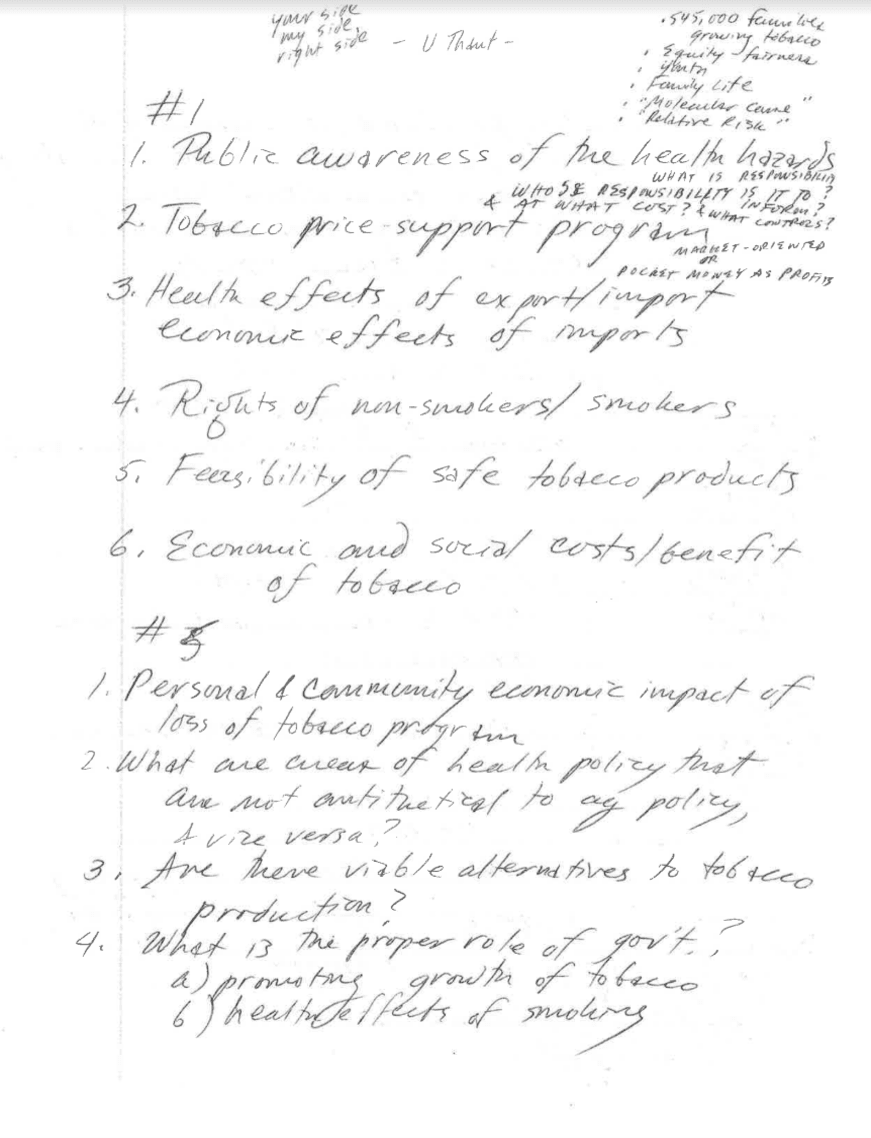 your side
my side
right side
- U Thant -
. 545,000 families
growing tobacco
. Equity - fairness
. youth
. Family Life
. "Molecular Cause"
. "Relative Risk"
#1
1. Public awareness of the health hazards
WHAT IS RESPONSIBILITY
WHOSE RESPONSIBILITY IS IT TO ?
& AT WHAT COST? & INFORM?
WHAT CONTROLS?
2. Tobacco price-support program
MARKET-ORIENTED
OR
POCKET MONEY AS PROFITS
3. Health effects of export/import
economic effects of imports
4. Rights of non-smokers/ smokers
5. Feasibility of safe tobacco products
6. Economic and social costs/benefit
of tobacco
#
1. Personal & Community economic impact of
loss of tobacco program
2. What are areas of health policy that
are not antithetical to ag policy,
& vize versa?
3. Are there viable alternatives to tobacco
production?
4. What is the proper role of gov't.?
a) promoting growth of tobacco
b) health effects of smoking